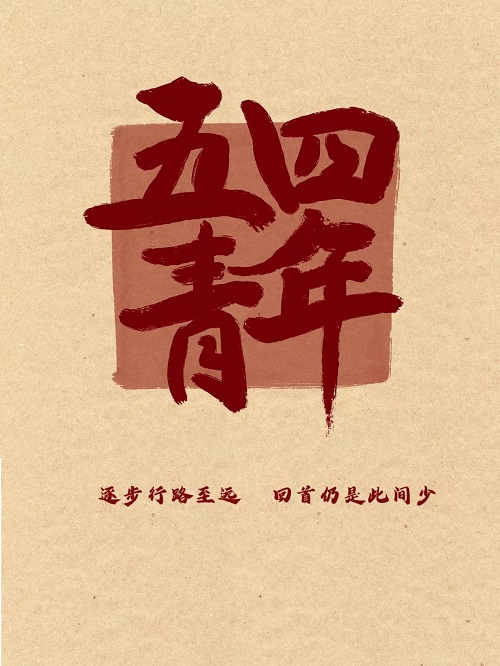 五四
青年
逐步行路至远 回首仍是此间少